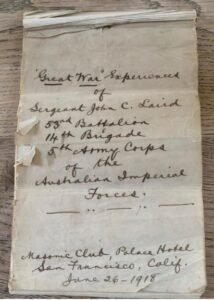 "Great War" Experiences
of
Sergeant John C. Laird
53rd Battalion
14th Brigade
5th Army Corps
of the
Australian Imperial
Forces.
Masonic Club, Palace Hotel
San Francisco, Calif.
June 26-1918